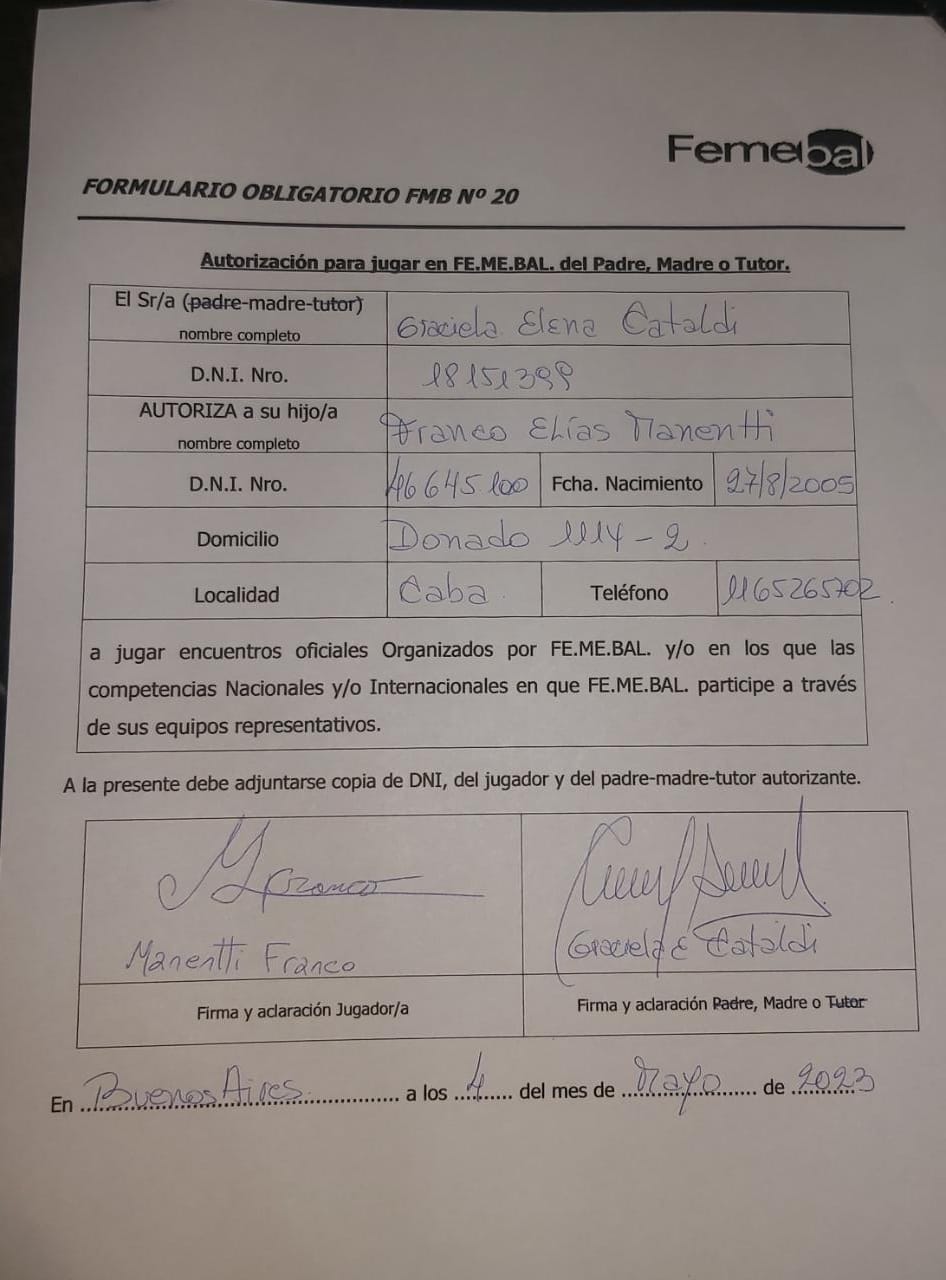 Femebal
FORMULARIO OBLIGATORIO FMB Nº 20
Autorización para jugar en FE.ME.BAL. del Padre, Madre o Tutor.
El Sr/a (padre-madre-tutor)
nombre completo
Graciela Elena Cataldi
D.N.I. Nro.
18151399
AUTORIZA a su hijo/a
nombre completo
Franco Elías Manentti
D.N.I. Nro.
46645100
Fcha. Nacimiento
27/8/2005
Domicilio
Donado 1114-2.
Localidad
Caba.
Teléfono
1165265702.
a jugar encuentros oficiales Organizados por FE.ME.BAL. y/o en los que las
competencias Nacionales y/o Internacionales en que FE.ME.BAL. participe a través
de sus equipos representativos.
A la presente debe adjuntarse copia de DNI, del jugador y del padre-madre-tutor autorizante.
Franco
Manentti Franco
Graciela E Cataldi
Firma y aclaración Jugador/a
Firma y aclaración Padre, Madre o Tutor
En Buenos Aires a los 4 del mes de Mayo de 2023